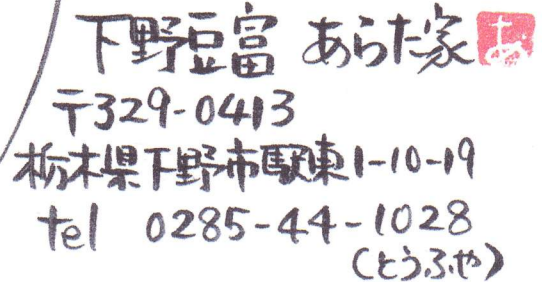 下野豆富 あらた家 あ
〒329-0413
栃木県下野市駅東1-10-19
tel 0285-44-1028
(とうふや)